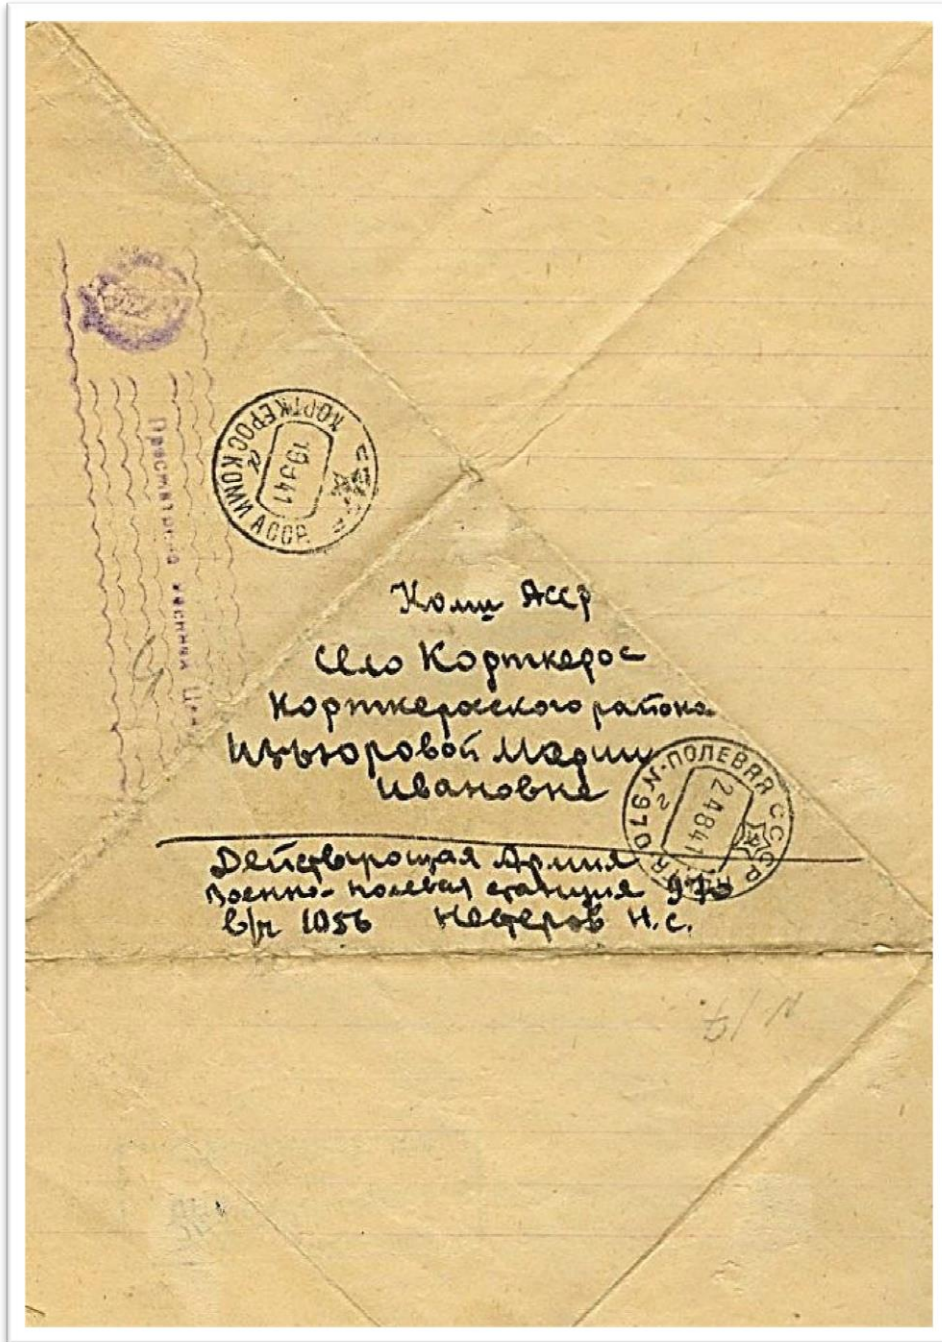 Просмотрено Военной Цен
КОРТКЕРОС КОМИ АССР
СССР
19 9 41
Коми АССР
Село Корткерос
Корткеросского района
Изъюровой Марии
Ивановне
ПОЛЕВАЯ СССР
24 8 41
N 970
Действующая Армия
Военно-полевая станция 970
в/ч 1056 Нестеров Н.С.
N 17